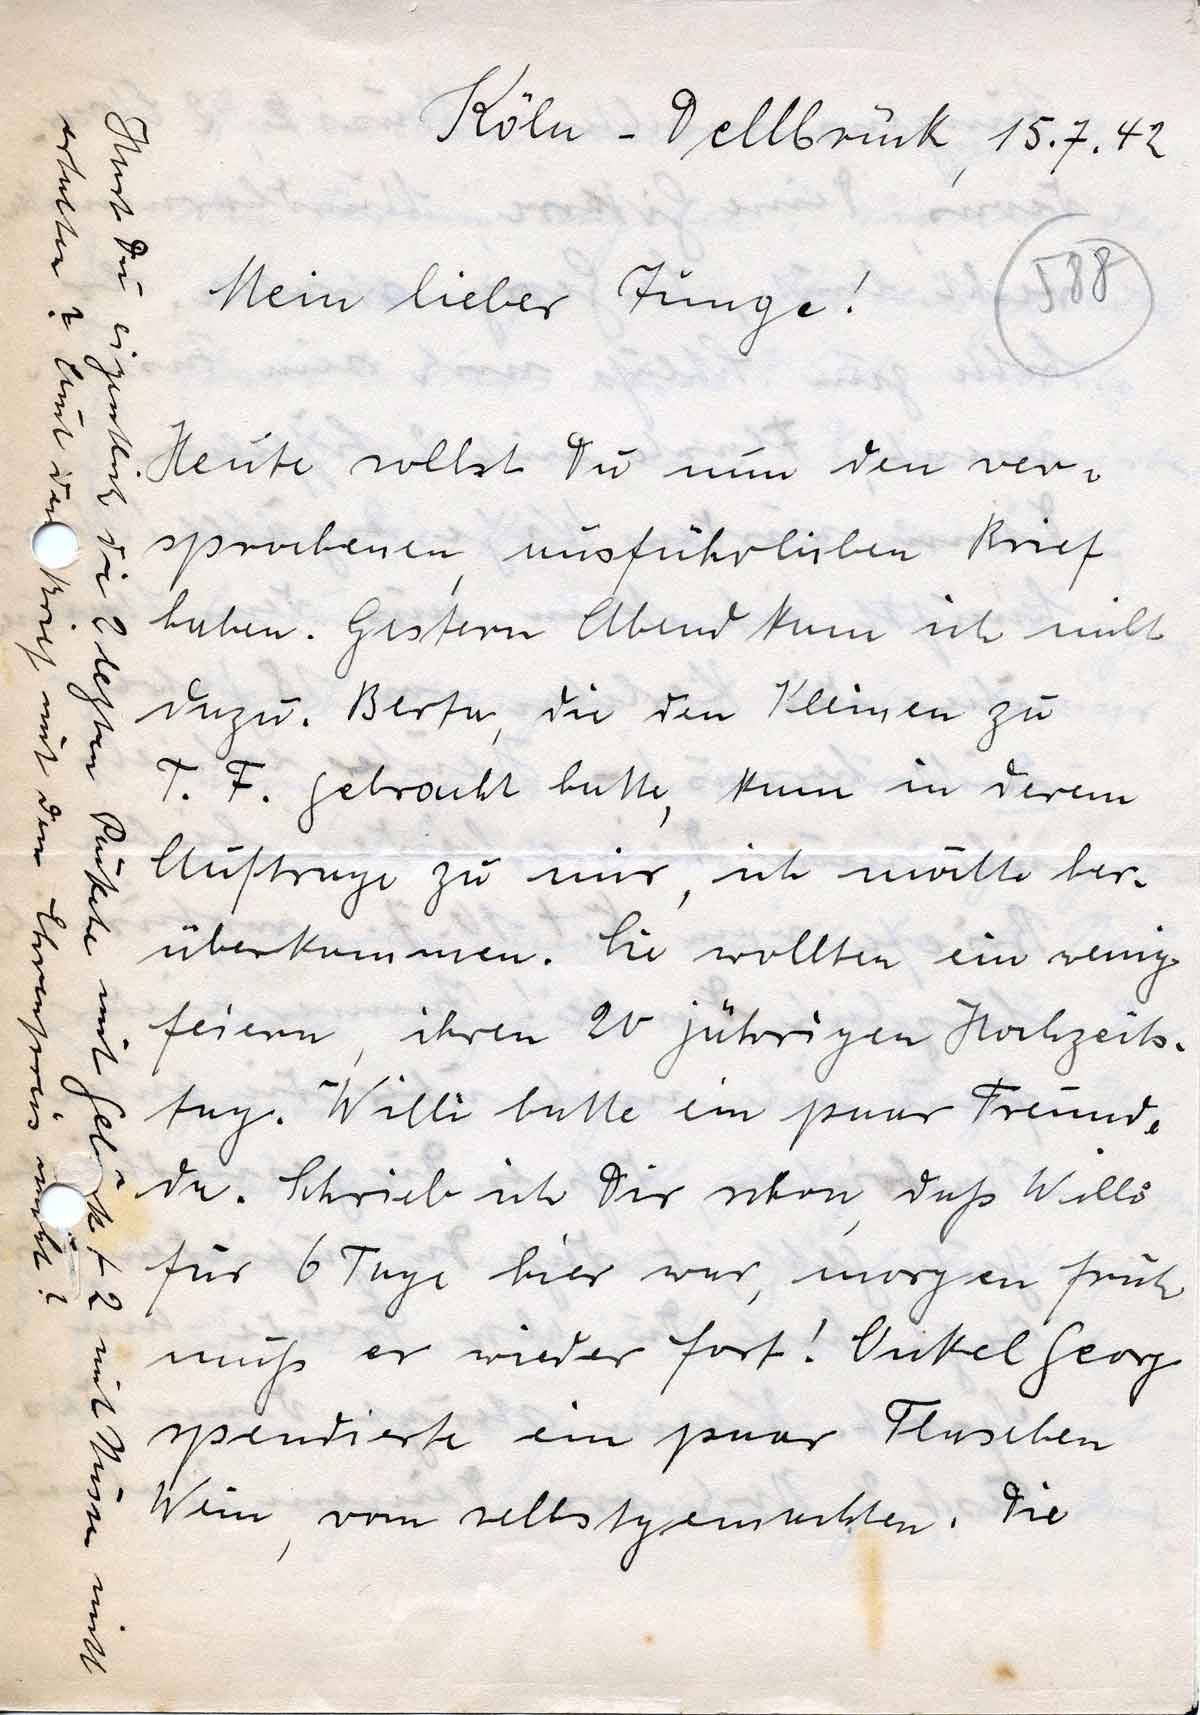 Köln - Dellbrück, 15.7.42
588
Mein lieber Junge!
Heute sollst Du nun den ver-
sprochenen, ausführlichen Brief
haben. Gestern Abend kam ich nicht
dazu. Berta, die den Kleinen zu
T. F. gebracht hatte, kam in deren
Auftrage zu mir, ich möchte her-
überkommen. Sie wollten ein wenig
feiern, ihren 20 jährigen Hochzeits-
tag. Willi hatte ein paar Freunde
da. Schrieb ich Dir schon, daß Willi
für 6 Tage hier war, morgen früh
muß er wieder fort! Onkel Georg
spendierte ein paar Flaschen
Wein, vom selbstgemachten. Die
Hast Du eigentlich die 2 letzten Päckchen mit Gebäck + 2 mit Nüssen nicht
erhalten? Und den Brief mit dem Ehrenpreis nicht?